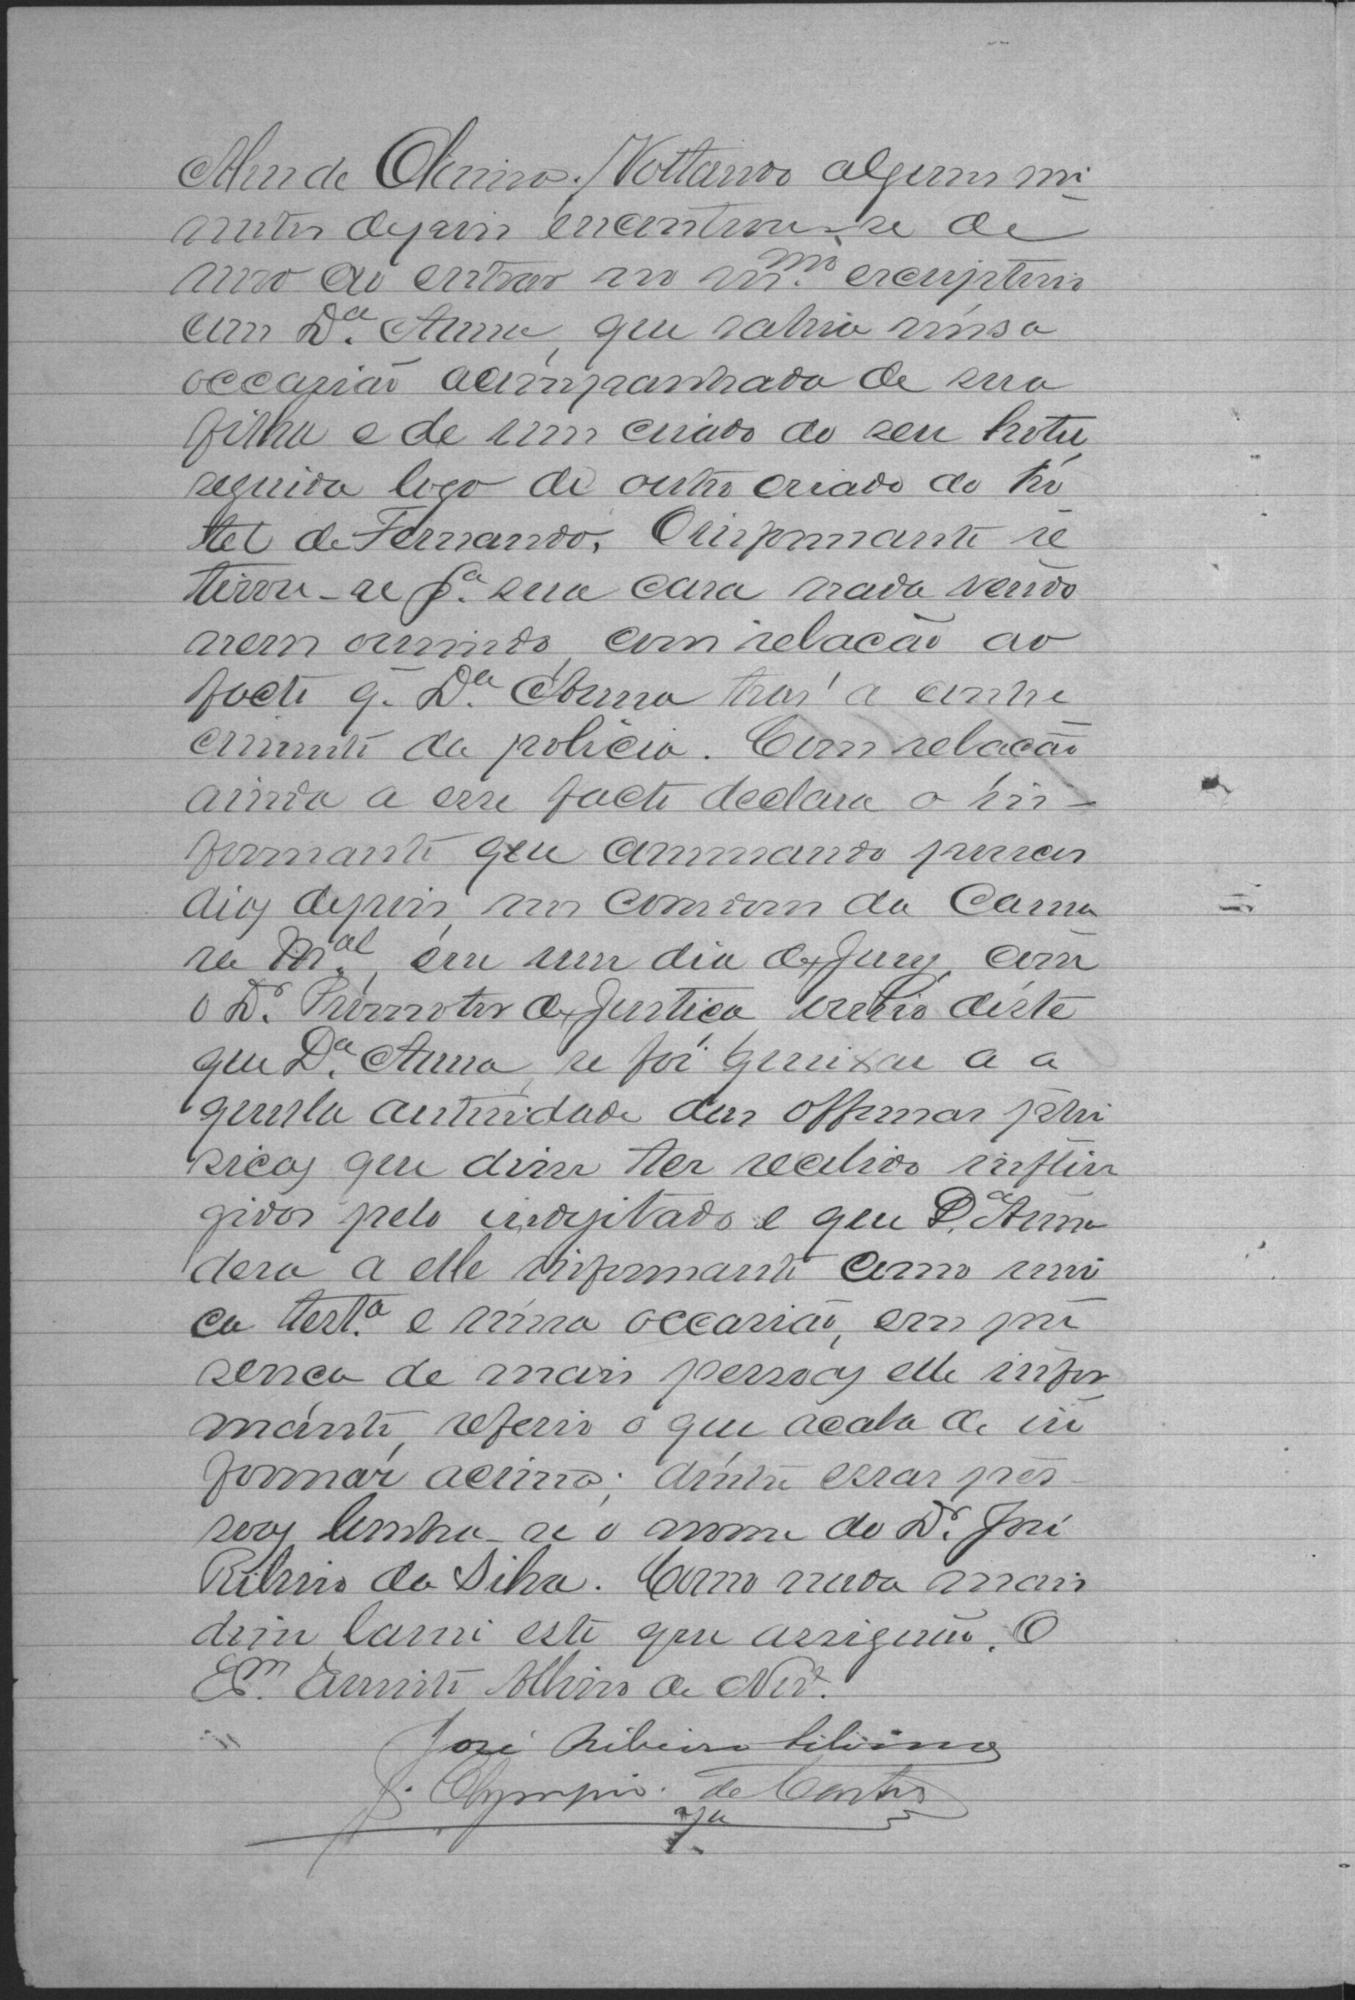 Voltando alguns mi
nutos depois encontrou-se de
novo ao entrar no m.mo escriptorio
com D.a Anna, que sahia nessa
occasião acompanhada de sua
filha e de um criado do seu hotel
seguida logo de outro criado do ho
tel de Fernando. O informante re
tirou-se p.a sua casa nada vendo
nem ouvindo, com relação ao
facto q. D.a Anna traz a conhe
cimento da policia. Com relação
ainda a esse facto declara o in-
formante que conversando poucos
dias depois, nos corredores da Cama
ra M.al, em um dia de Jury, com
o D.r Promotor de Justiça, ouvio deste
que D.a Anna, se foi queixar a a
quella autoridade das offensas phi
sicas que disse ter recebido inflin
gidos pelo indigitado e que D.a Anna
dera a elle informante como uni
ca test.a e nessa occasião, em pre
sença de mais pessoas elle infor
mante, referio o que acaba de in
formar acima; dentre essas pes-
soas lembra-se o nome do D.r José
Ribeiro da Silva. Como nada mais
disse lavrei este que assignão. O
Es.m
José Ribeiro
J. Olympio de Castro